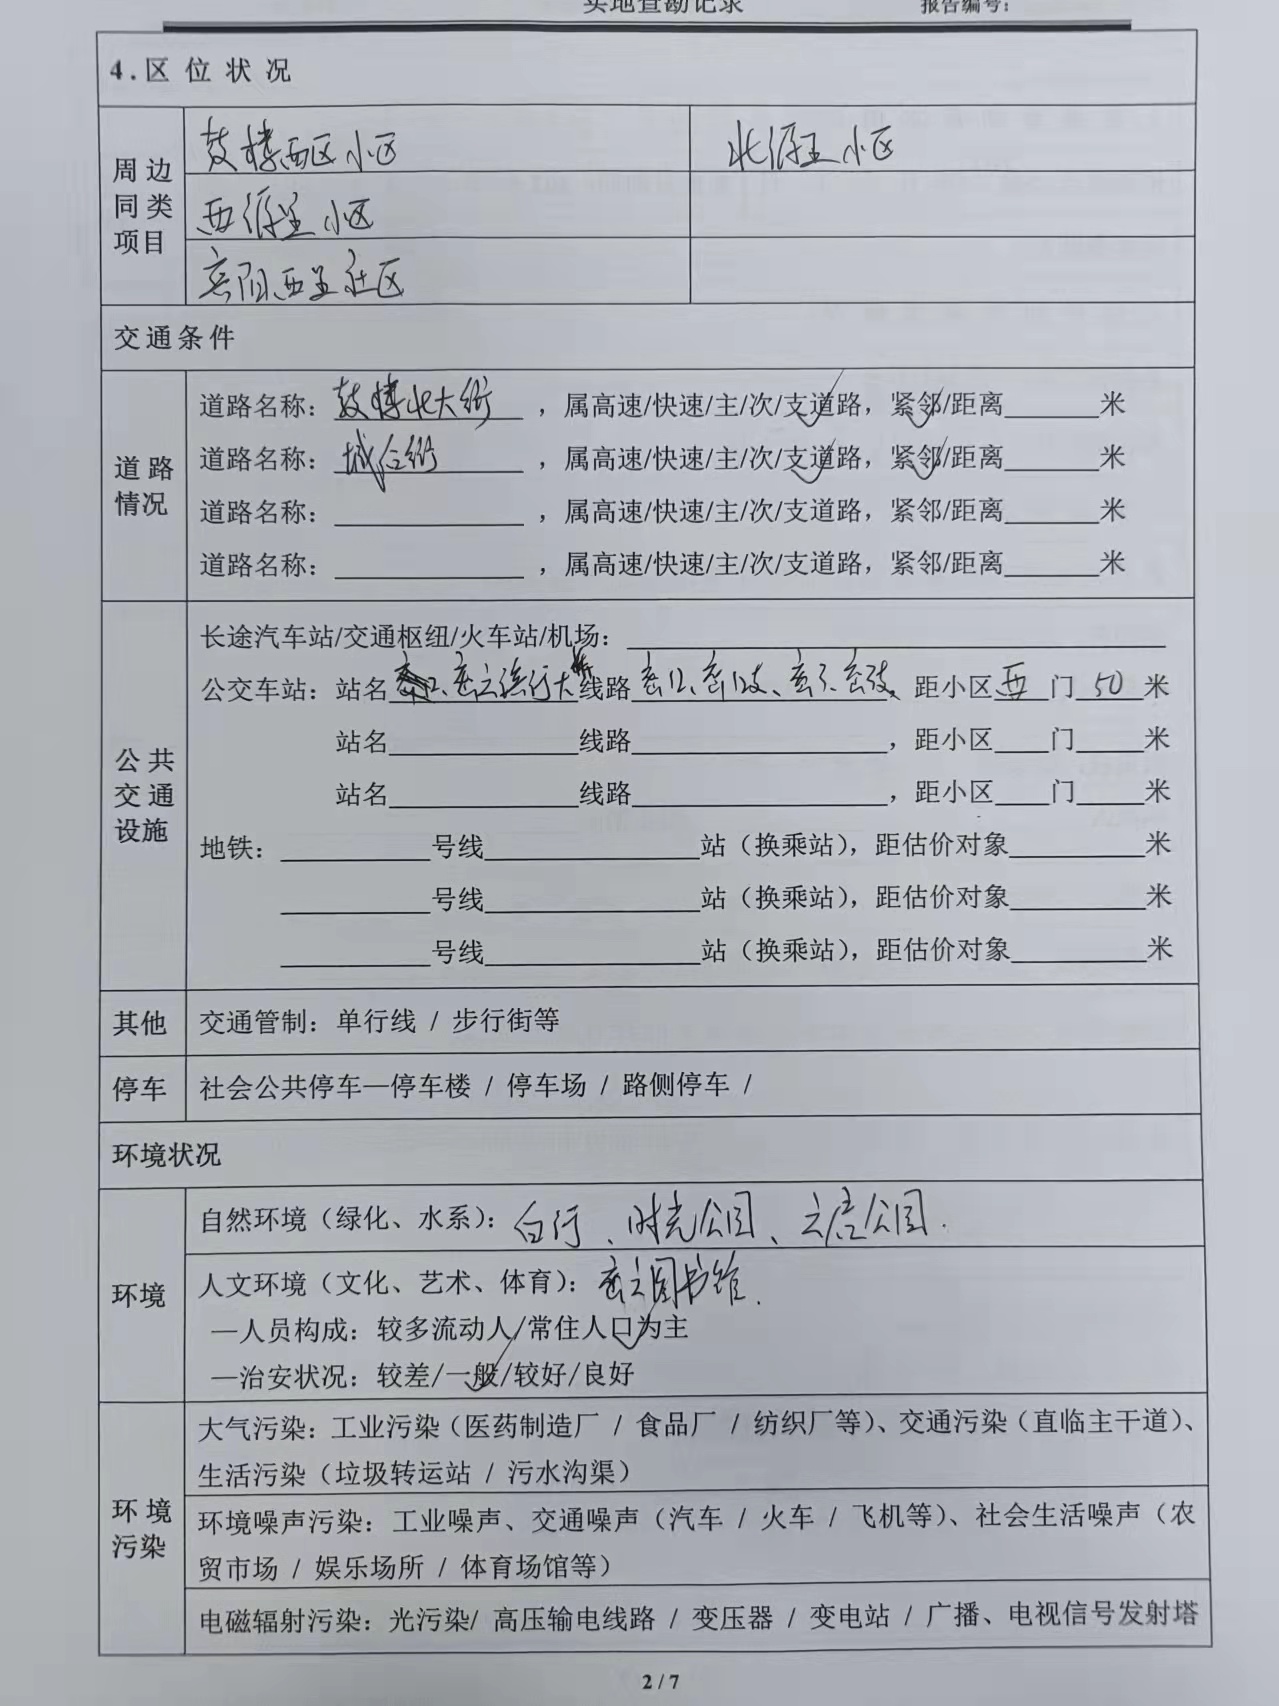 实地查勘记录 报告编号:
4.区位状况
周边同类项目
鼓楼西区小区 北源里小区
西源里小区
密阳西里社区
交通条件
道路情况
道路名称：鼓楼北大街，属高速/快速/主/次/支道路，紧邻/距离____米
道路名称：城后街，属高速/快速/主/次/支道路，紧邻/距离____米
道路名称：____，属高速/快速/主/次/支道路，紧邻/距离____米
道路名称：____，属高速/快速/主/次/支道路，紧邻/距离____米
公共交通设施
长途汽车站/交通枢纽/火车站/机场：____
公交车站：站名 密云 线路 密12、 距小区西门50米
站名____线路____，距小区____门____米
站名____线路____，距小区____门____米
地铁：____号线____站（换乘站），距估价对象____米
____号线____站（换乘站），距估价对象____米
____号线____站（换乘站），距估价对象____米
其他 交通管制：单行线 / 步行街等
停车 社会公共停车—停车楼 / 停车场 / 路侧停车 /
环境状况
环境
自然环境（绿化、水系）：白河、时光公园、公园.
人文环境（文化、艺术、体育）：密云图书馆.
—人员构成：较多流动人/常住人口为主
—治安状况：较差/一般/较好/良好
环境污染
大气污染：工业污染（医药制造厂 / 食品厂 / 纺织厂等）、交通污染（直临主干道）、
生活污染（垃圾转运站 / 污水沟渠）
环境噪声污染：工业噪声、交通噪声（汽车 / 火车 / 飞机等）、社会生活噪声（农
贸市场 / 娱乐场所 / 体育场馆等）
电磁辐射污染：光污染/ 高压输电线路 / 变压器 / 变电站 / 广播、电视信号发射塔
2 / 7